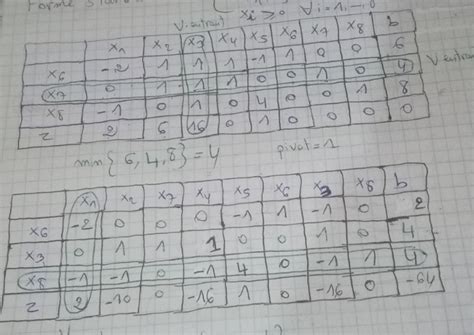 Forme Stand
xi ≥ 0 ∀i=1,...,8
V. entrant
x1 x2 x3 x4 x5 x6 x7 x8 b
x6 -2 1 1 1 -1 1 0 0 6
x7 0 1 1 1 0 0 1 0 4
x8 -1 0 1 0 4 0 0 1 8
Z 2 6 16 0 1 0 0 0 0
min{6,4,8}=4 pivot=1
x1 x2 x7 x4 x5 x6 x3 x8 b
x6 -2 0 0 0 -1 1 -1 0 2
x3 0 1 1 1 0 0 1 0 4
x8 -1 -1 0 -1 4 0 -1 1 4
Z 2 -10 0 -16 1 0 -16 0 -64